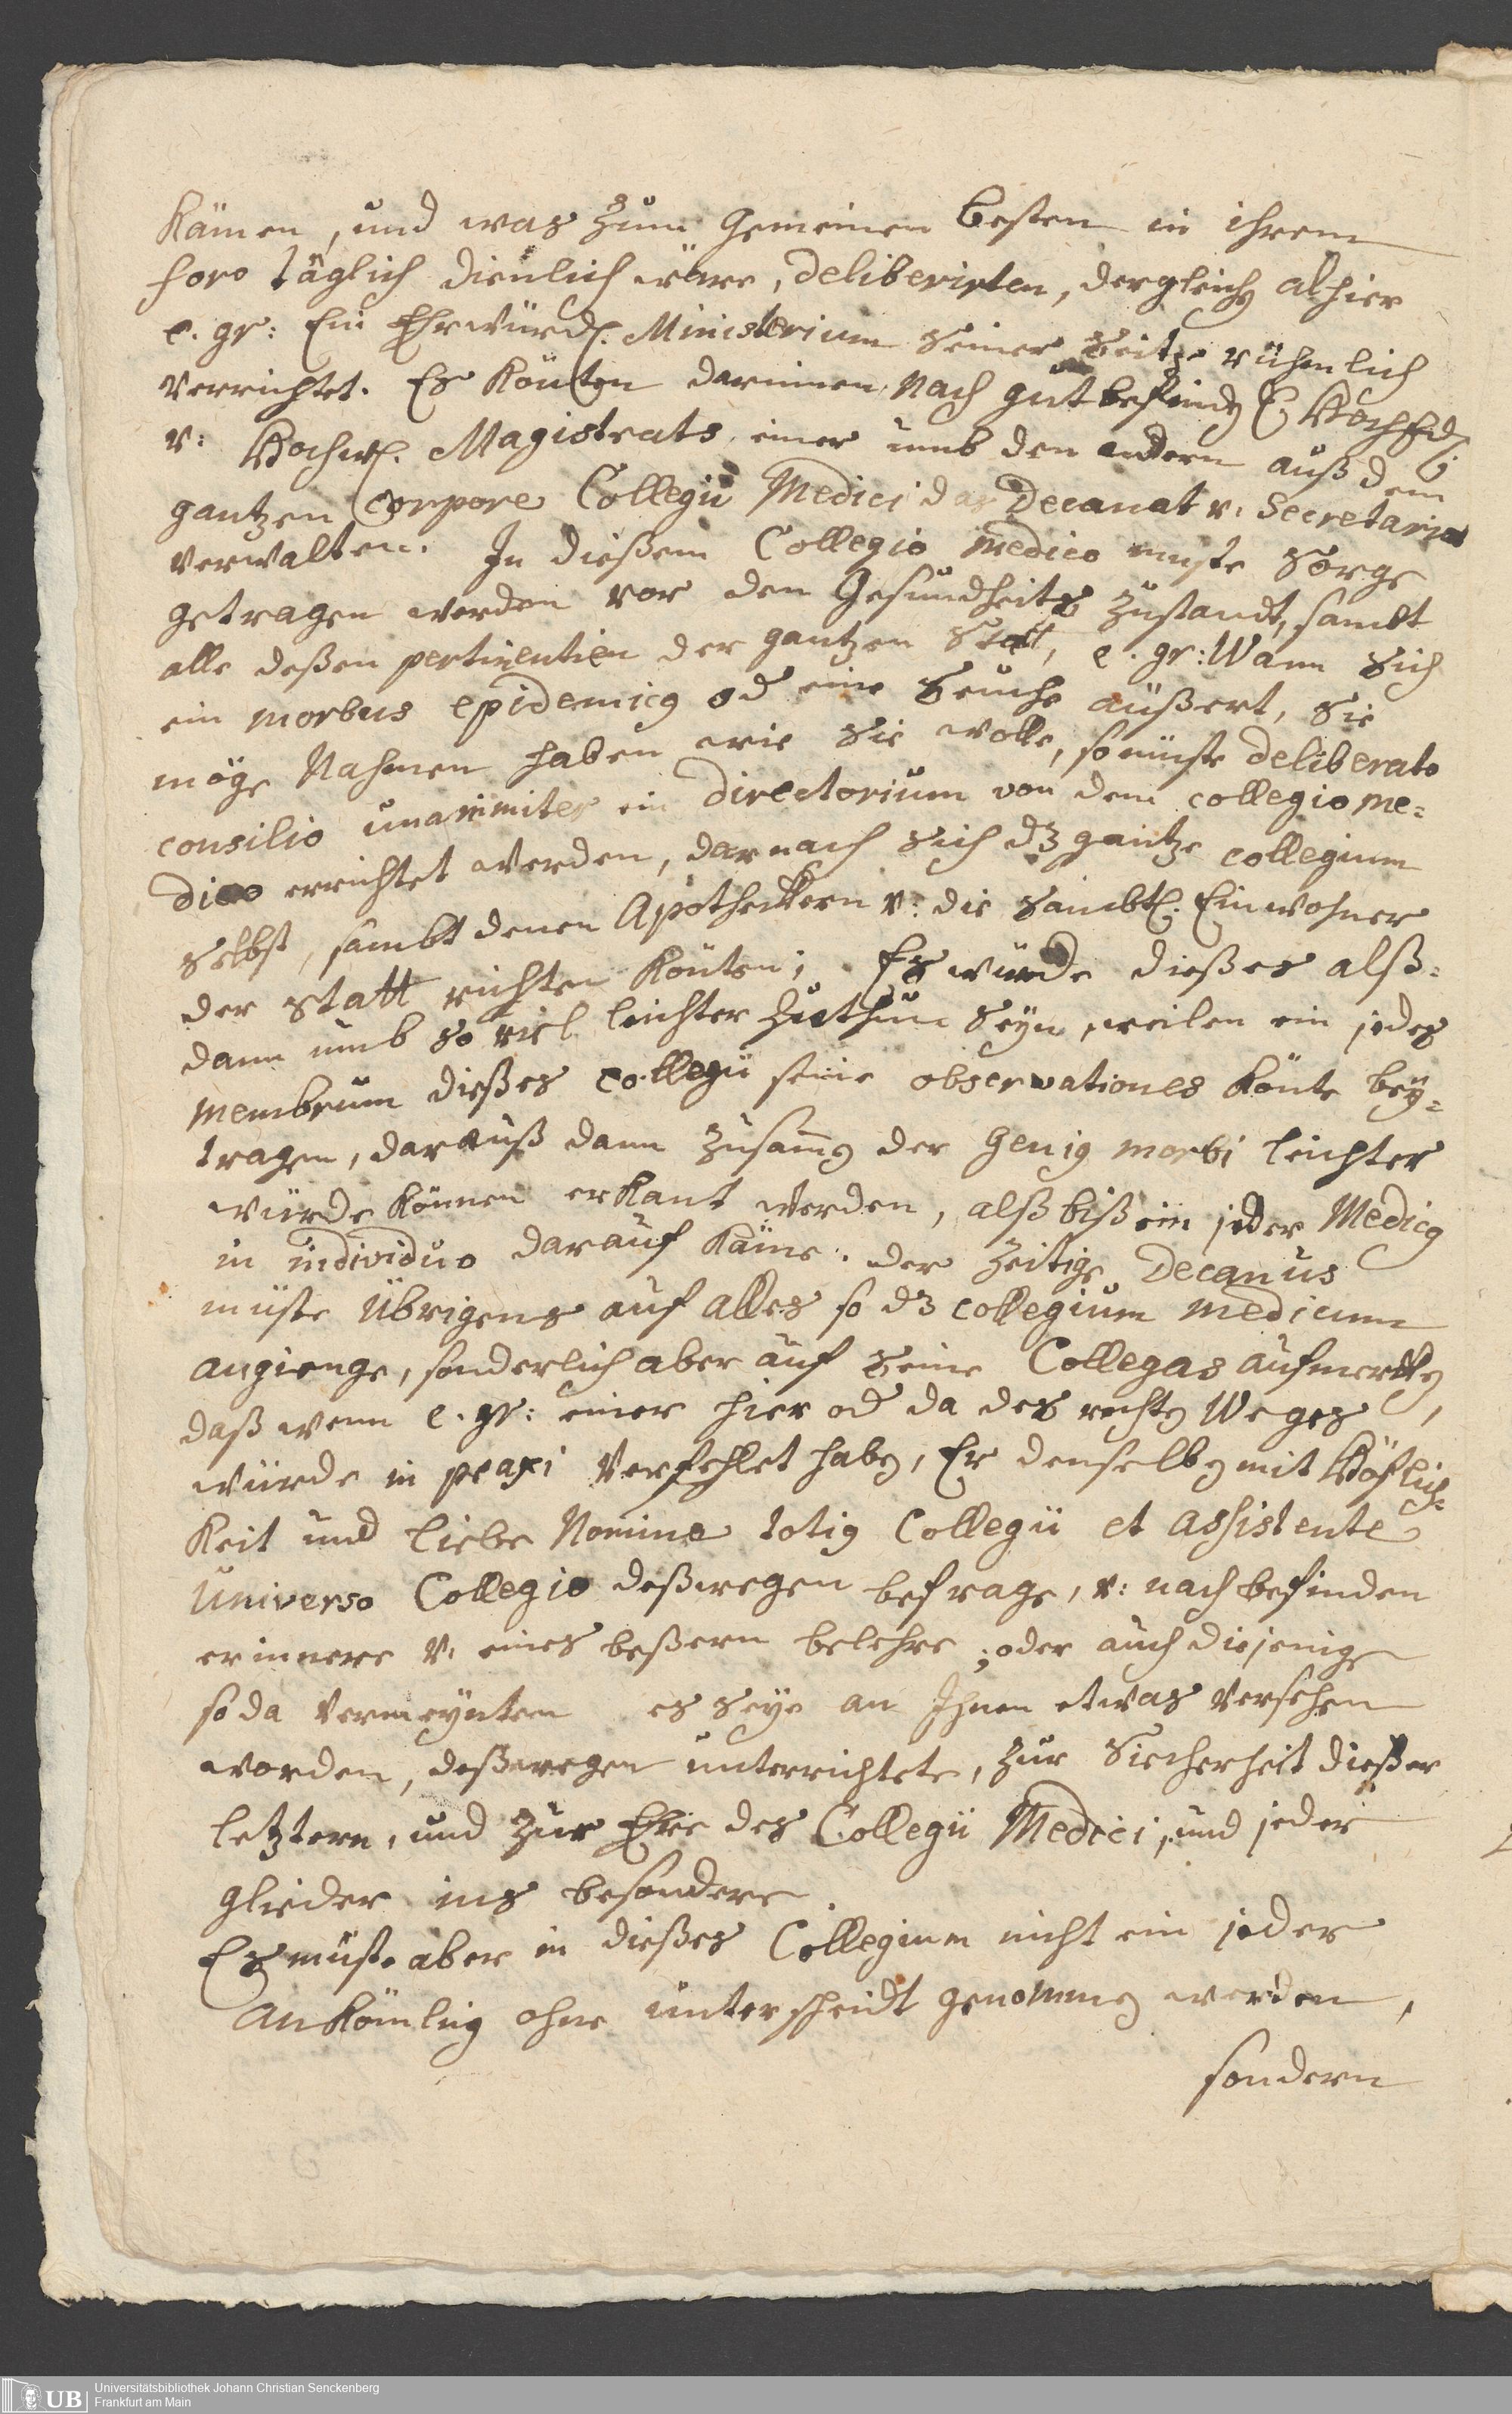 kämen, und was zum Gemeinen besten in ihrem
foro täglich dienlich wäre, deliberirten, dergleichen alhier
e. gr: Ein Ehrwürd. Ministerium seiner seitze rühmlich
verrichtet. Es könten darinnen nach gutbefinden E HochEd.
v: Hochw. Magistrats einer umb den andern auß dem
gantzen Corpore Collegii Medici das Decanat v: Secretariat
verwalten. In dießem Collegio medico müste sorge
getragen werden vor den Gesundheits zustandt, sambt
alle deßen pertinentien der gantzen Statt, e. gr: Wann sich
ein morbus epidemicus od eine Seuche äüßert, sie
möge Nahmen haben wie sie wolle, so müste deliberato
consilio unanimiter ein directorium von dem collegio me=
dico errichtet werden, darnach sich dz gantze collegium
selbst, sambt denen Apotheckern v: die sambtl. Einwohner
der statt richten könten; Es würde dießes alß=
dann umb so viel leichter zuthun seyn, weilen ein jedes
membrum dießes collegii seine observationes könte bey=
tragen, darauß dann zusamen der Genius morbi leichter
würde können erkant werden, alß biß ein jeder Medicus
in individuo darauf käme. der zeitige Decanus
müste übrigens auf alles so dz collegium medicum
angienge, sonderlich aber auf seine Collegas aufmercken,
daß wenn e. gr: einer hier od da des rechten Weges
würde in praxi verfehlet haben, Er denselben mit Höflich=
keit und Liebe Nomine totius Collegii et assistente
Universo Collegio deßwegen befrage, v: nach befinden
erinnere v: eines beßern belehre; oder auch diejenige
so da vermeynten es seye an Ihnen etwas versehen
worden, deßwegen unterrichtete, zur Siecherheit dießer
letztern, und zur Ehre des Collegii Medici, und jeder
glieder ins besondere.
Es müste aber in dießes Collegium nicht ein jeder
Ankömling ohne unterscheidt genommen werden,
sondern
UB
Universitätsbibliothek Johann Christian Senckenberg
Frankfurt am Main